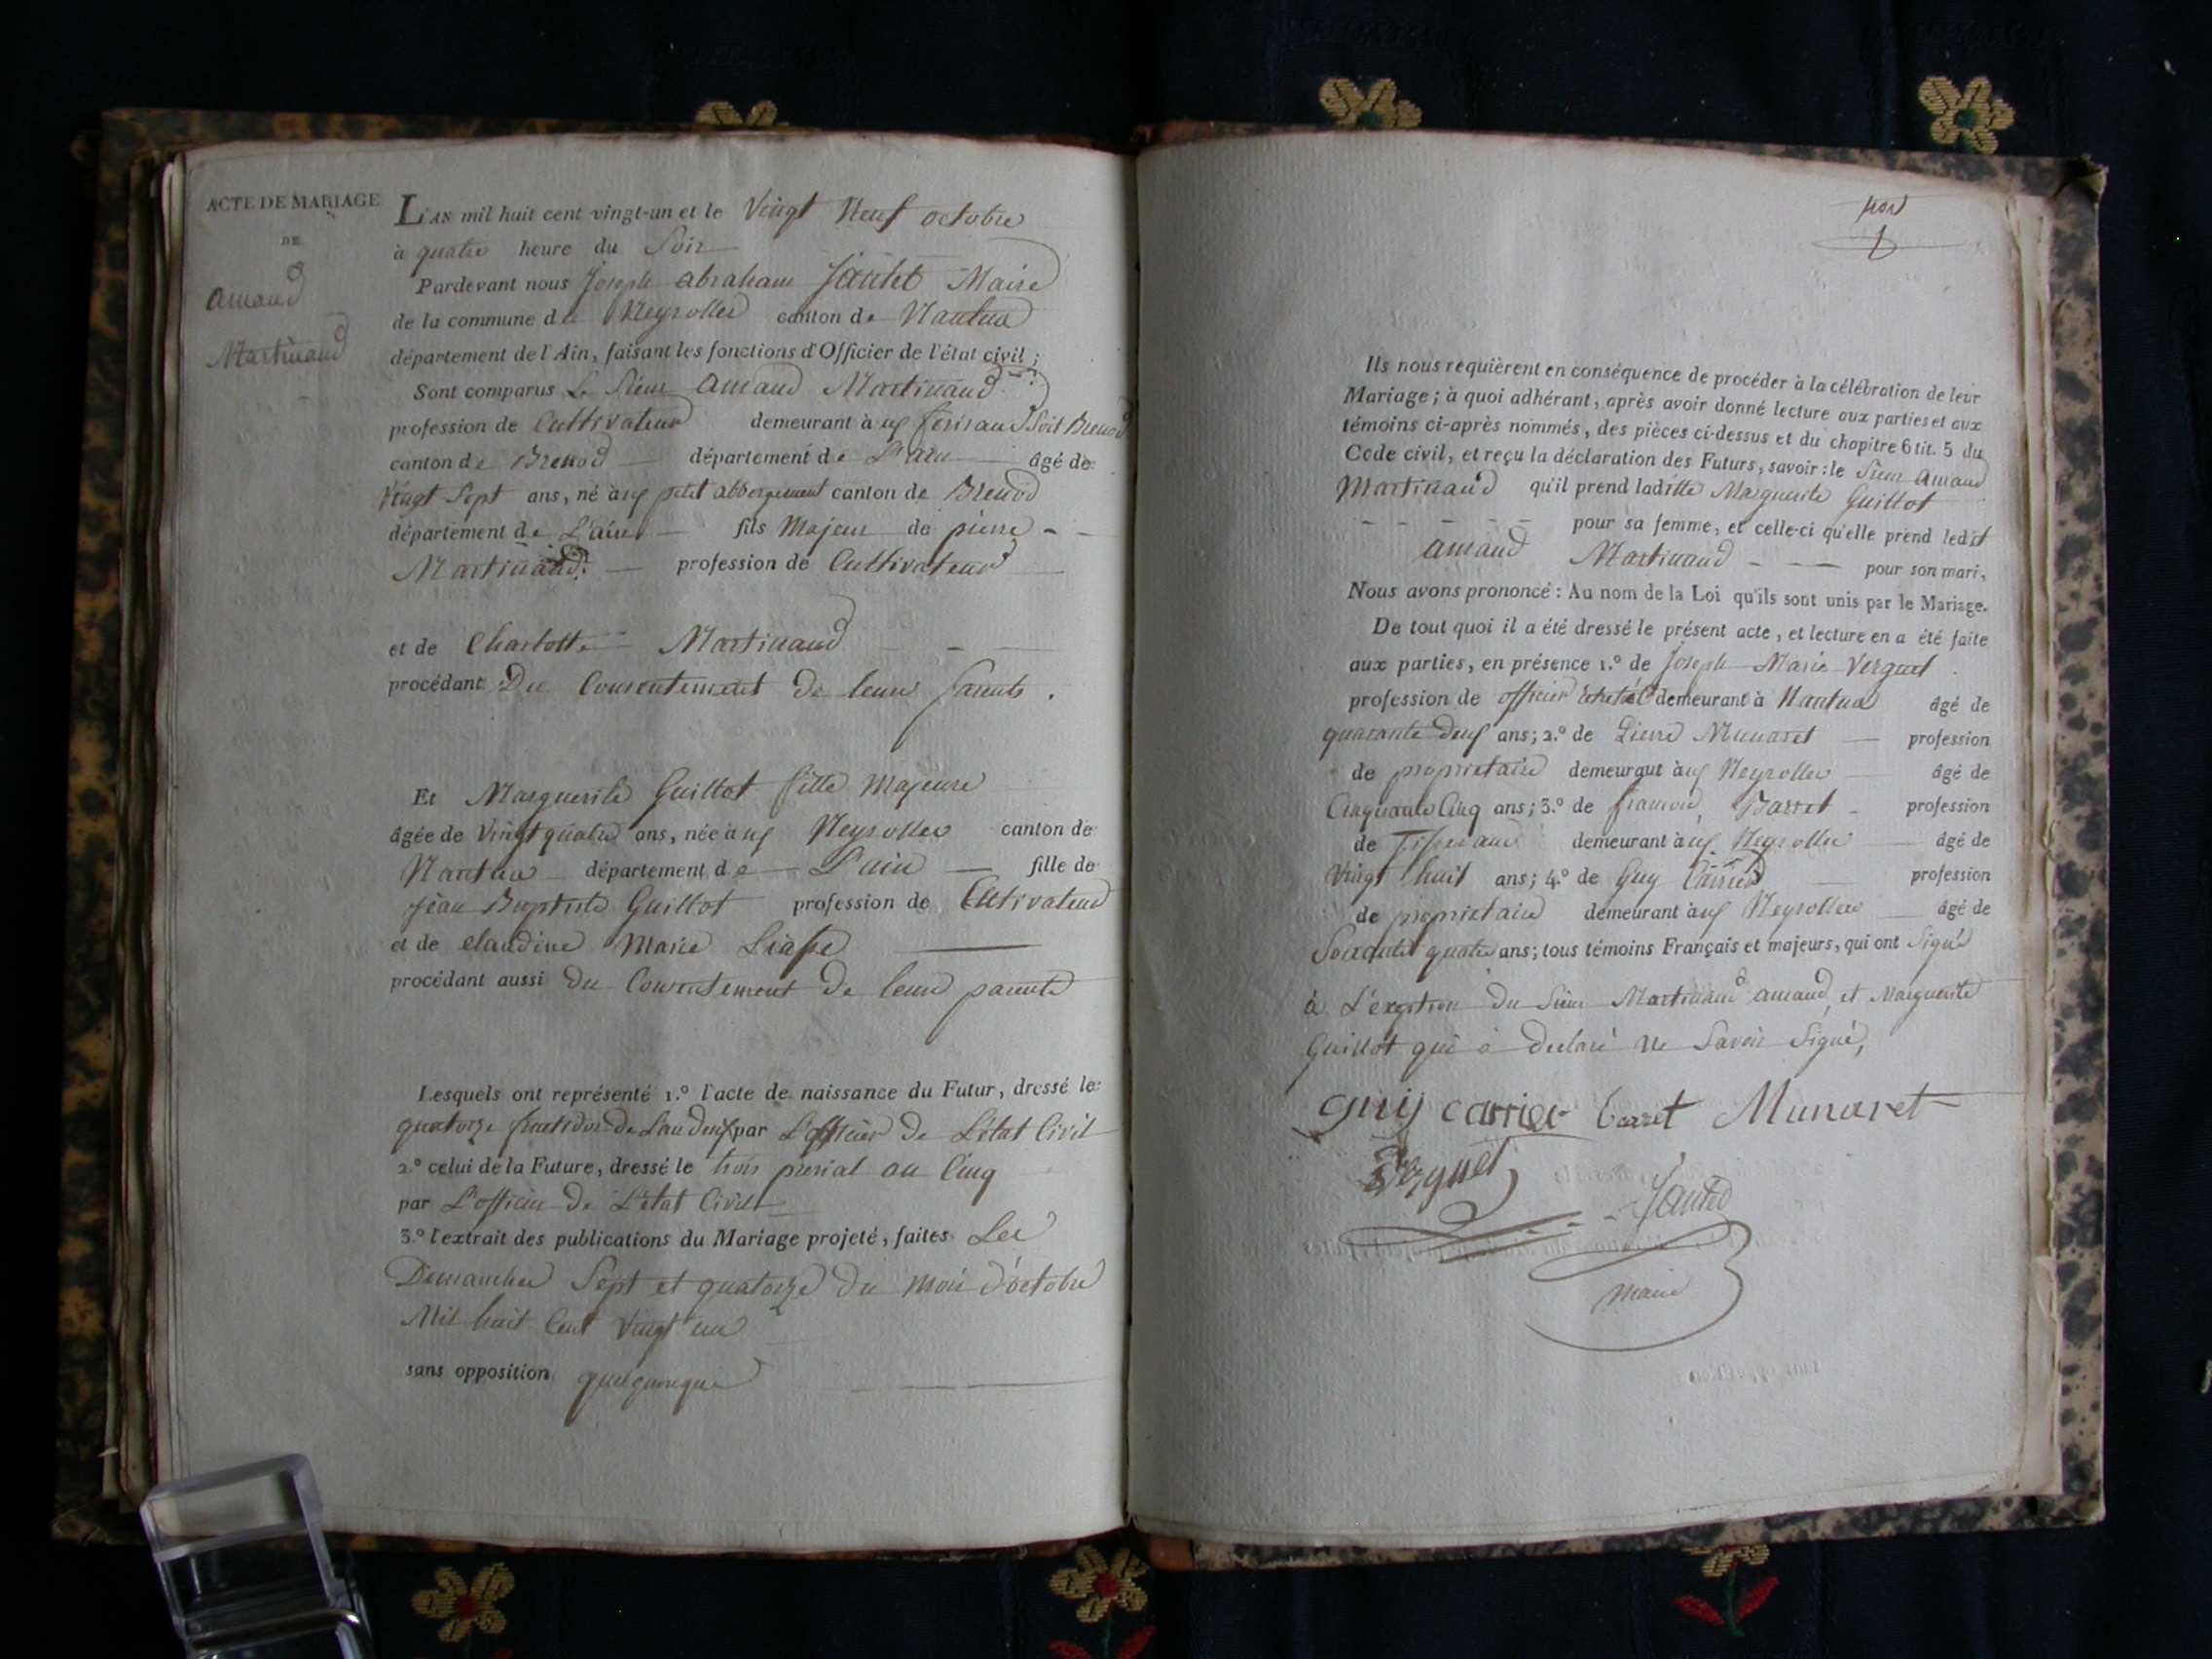 ACTE DE MARIAGE
DE
Amand
Martinand
L'AN mil huit cent vingt-un et le Vingt Neuf octobre
à quatre heure du Soir
Pardevant nous Joseph abraham Jantet Maire
de la commune des Neyrolles canton de Nantua
département de l'Ain, faisant les fonctions d'Officier de l'état civil;
Sont comparus Le Sieur Amand Martinand
profession de Cultivateur demeurant à
canton de Brenod département de L'ain âgé de
Vingt Sept ans, né au petit abbergement canton de Brenod
département de L'ain fils Majeur de pierre
Martinand profession de Cultivateur
et de Charlotte Martinand
procédant Du Consentement de leurs parents.
Et Marguerite Guillot fille Majeure
âgée de Vingt quatre ans, née à ux Neyrolles canton de
Nantua département de L'ain fille de
jean Baptiste Guillot profession de Cultivateur
et de claudine Marie Liasse
procédant aussi du Consentement de leurs parents
Lesquels ont représenté 1.º l'acte de naissance du Futur, dressé le
quatorze fructidor de L'an deux par L'officier de L'état Civil
2.º celui de la Future, dressé le trois prerial an Cinq
par L'officier de L'état Civil
3.º l'extrait des publications du Mariage projeté, faites Les
Dimanches Sept et quatorze du Mois d'octobre
Mil huit Cent Vingt un
sans opposition quelquonque
Ils nous requièrent en conséquence de procéder à la célébration de leur
Mariage; à quoi adhérant, après avoir donné lecture aux parties et aux
témoins ci-après nommés, des pièces ci-dessus et du chapitre 6 tit. 5 du
Code civil, et reçu la déclaration des Futurs, savoir: le Sieur Amand
Martinaud qu'il prend laditte Marguerite Guillot
pour sa femme, et celle-ci qu'elle prend ledit
amand Martinand pour son mari,
Nous avons prononcé: Au nom de la Loi qu'ils sont unis par le Mariage.
De tout quoi il a été dressé le présent acte, et lecture en a été faite
aux parties, en présence 1.º de Joseph Marie Verguet
profession de officier retraité demeurant à Nantua âgé de
quarante deux ans; 2.º de Pierre Munaret profession
de proprietaire demeurant à ux Neyrolles âgé de
Cinquante Cinq ans; 3.º de francois Barret profession
de Tisserand demeurant à ux Neyrolles âgé de
Vingt huit ans; 4.º de Guy Carrier profession
de proprietaire demeurant à ux Neyrolles âgé de
Soixante quatre ans; tous témoins Français et majeurs, qui ont Signé
à L'exeption du Sieur Martinand amand, et Marguerite
Guillot qui a declaré ne Savoir Signé,
guij carrier baret Munaret
Verguet
Jantet
Maire